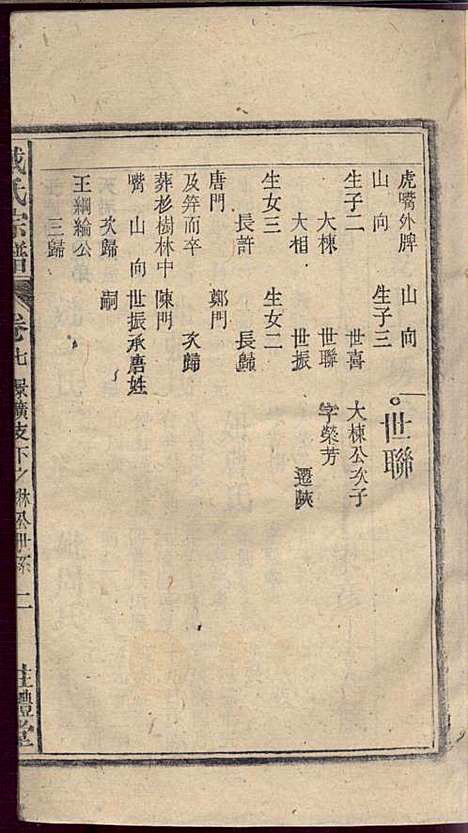 虎嘴外牌 山向 世聯
山向 生子三
生子二 世喜 大棟公次子
大棟 世聯 字榮芳
大相 世振 遷陝
生女三 生女二
長許 長歸
唐門 鄭門
及笄而卒 次歸
葬杉樹林中 陳門
嘴 山 向 世振承唐姓
次歸 嗣
王綱綸公
三歸
氏宗譜 卷七 支下之 公世系 二 禮堂